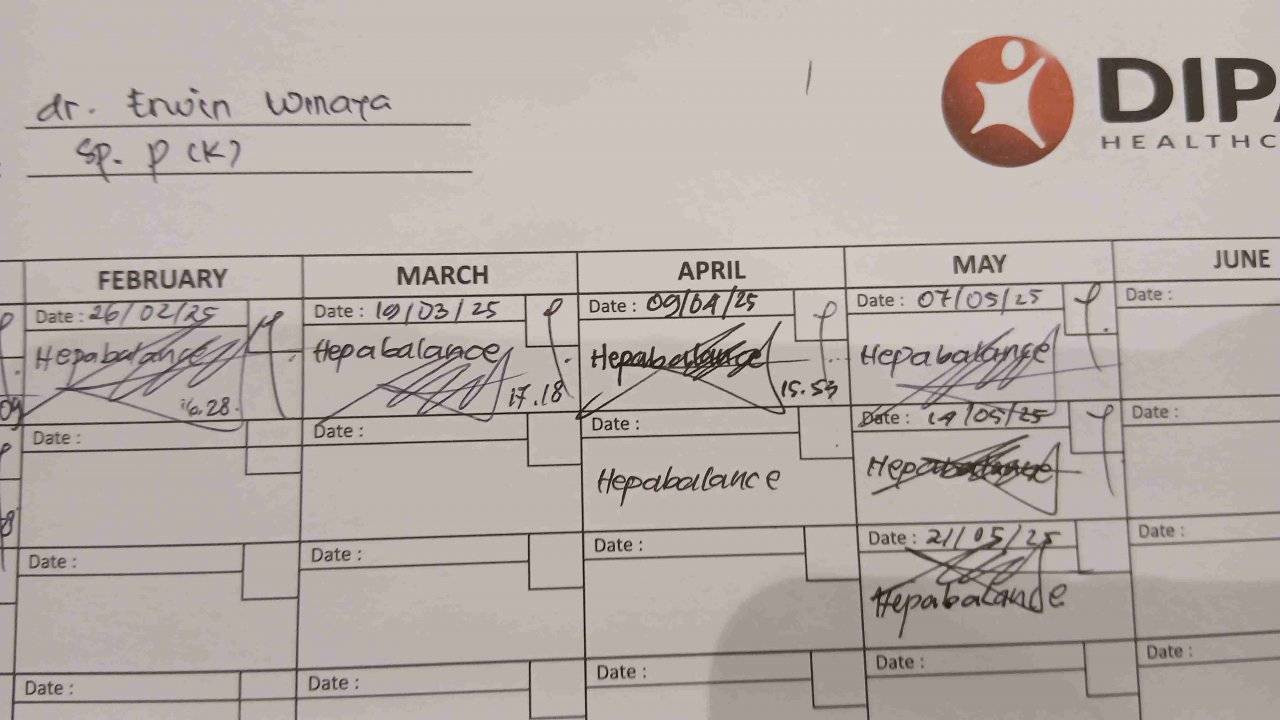 dr. Erwin Winaya
Sp. P (K)
DIPA
HEALTHC
FEBRUARY MARCH APRIL MAY JUNE
Date : 26/02/25 Date : 19/03/25 Date : 09/04/25 Date : 07/05/25 Date :
Hepabalance Hepabalance Hepabalance Hepabalance
09 16.28 17.18 15.53
Date : Date : Date : Date : 14/05/25 Date :
Hepabalance Hepabalance
8
Date : Date : Date : Date : 21/05/25 Date :
Hepabalance
Date : Date : Date : Date : Date :